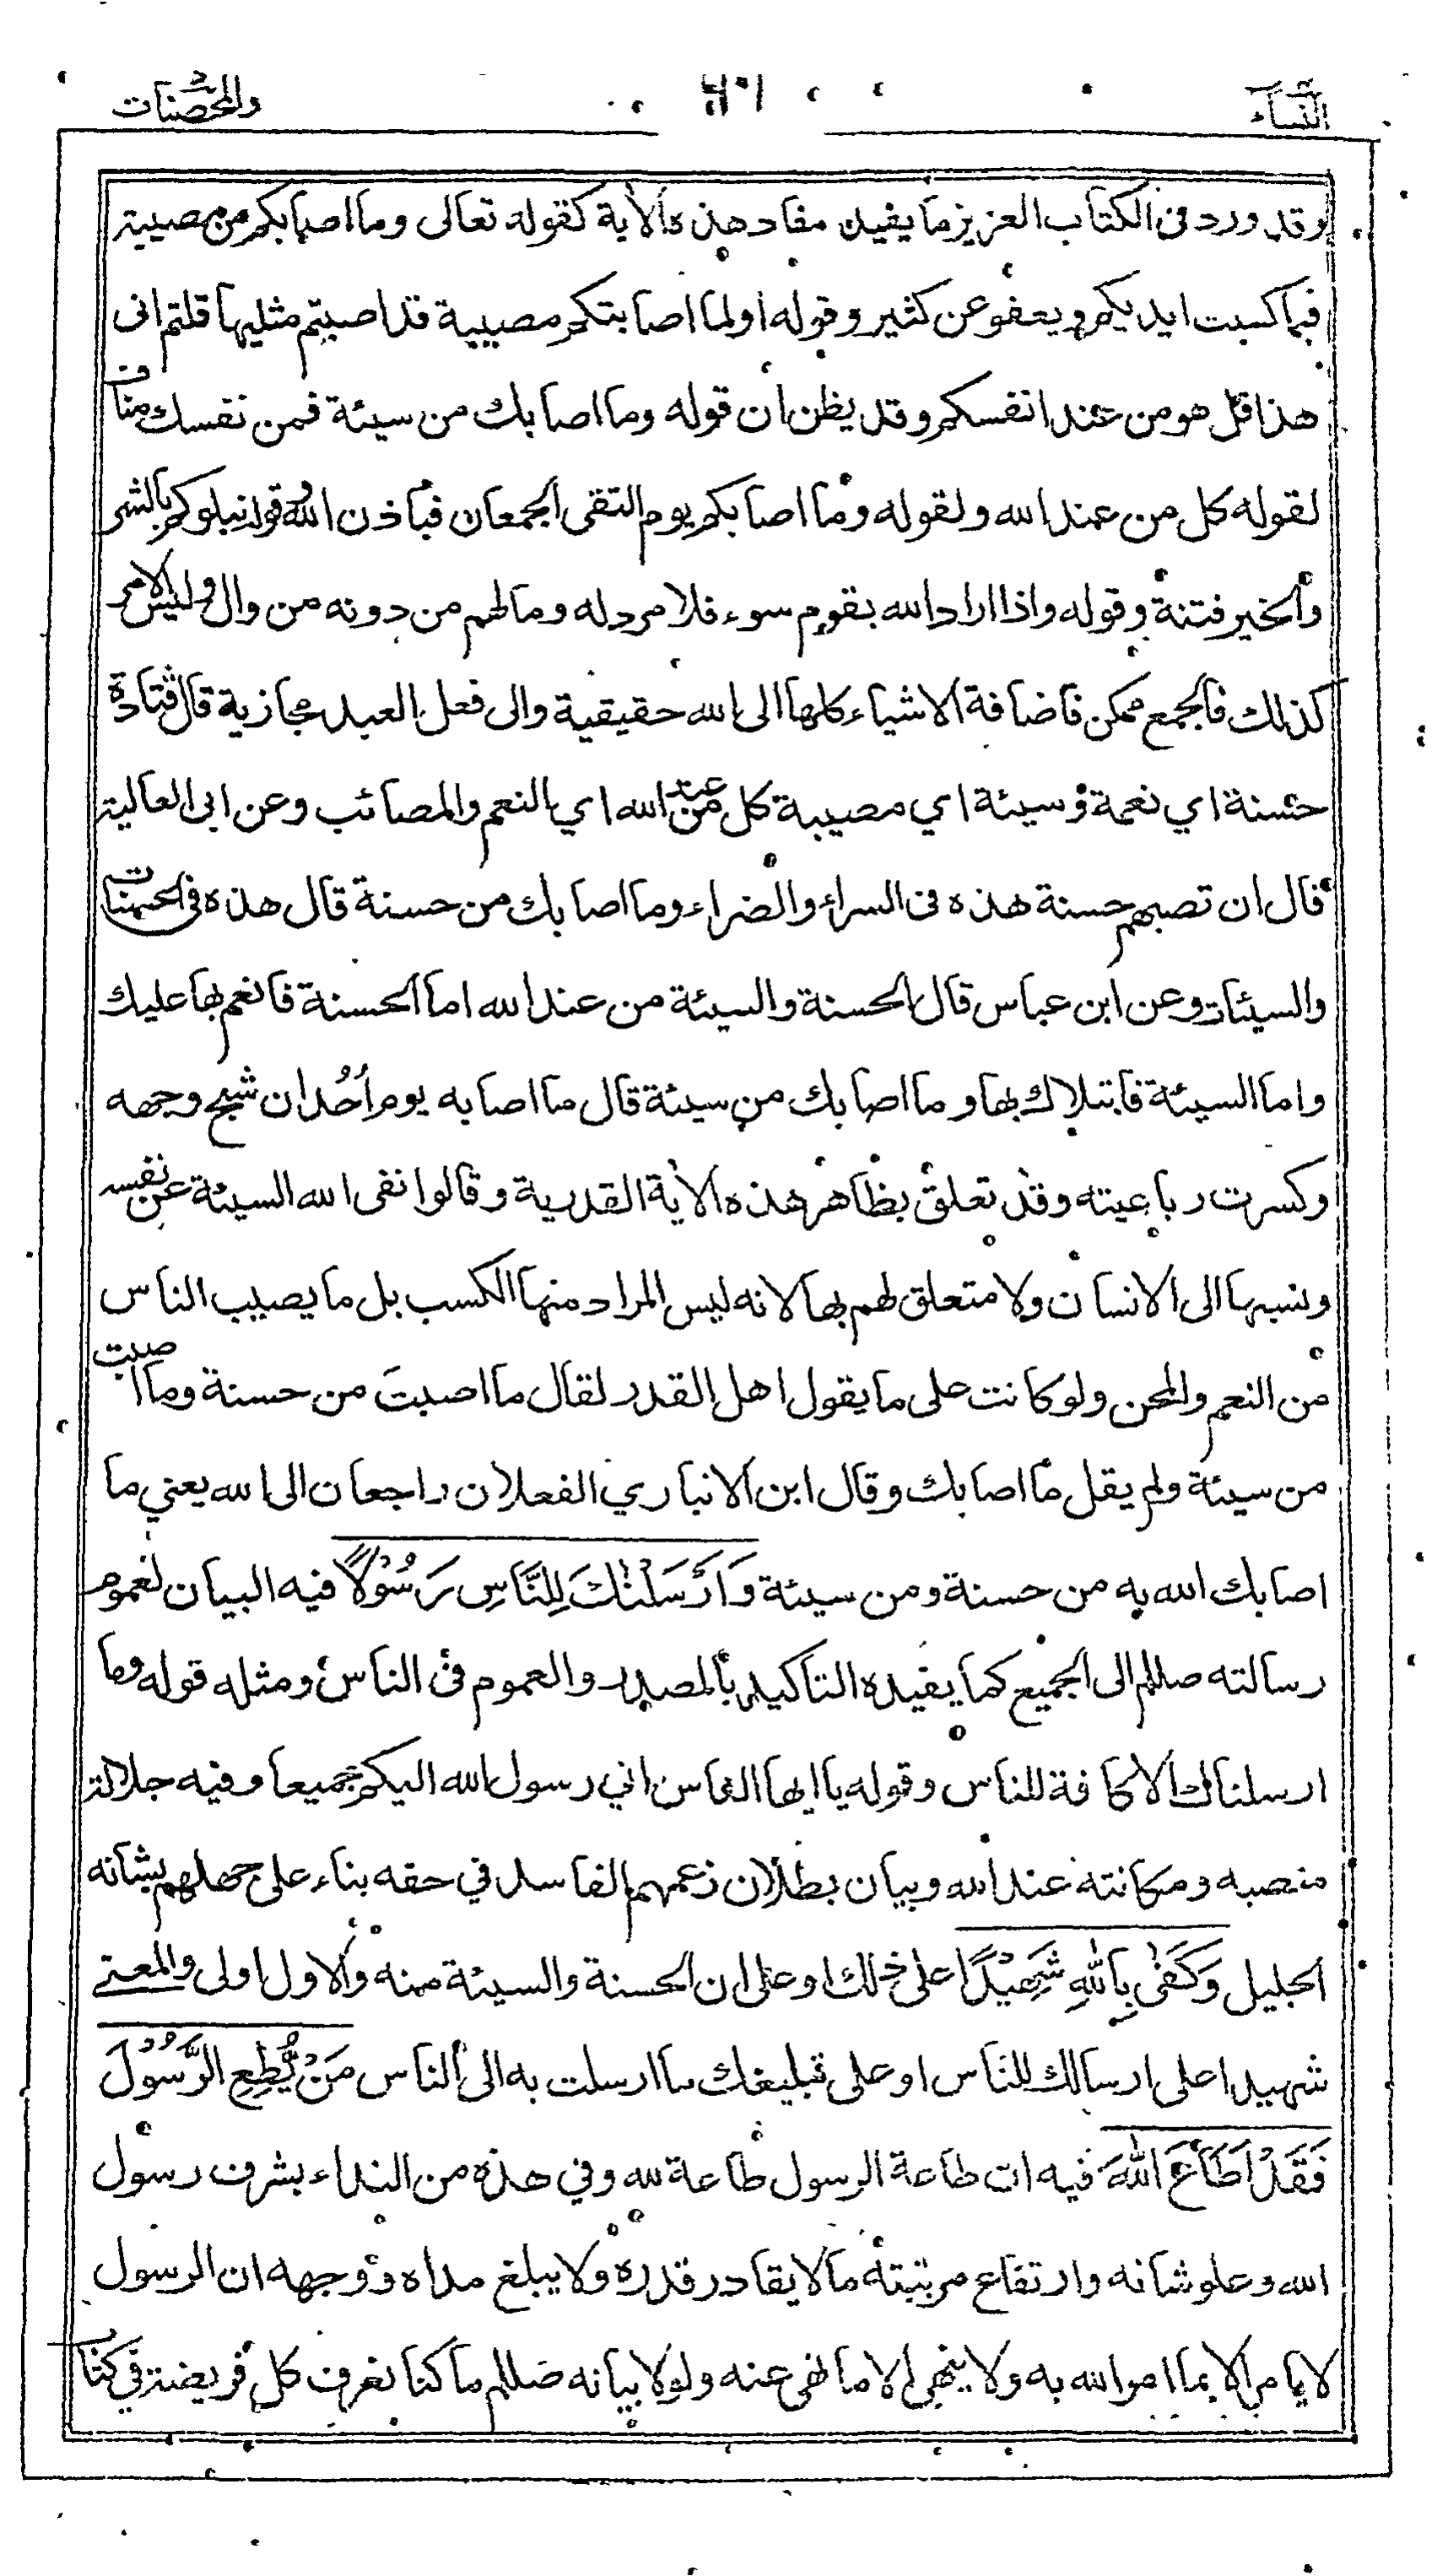 النساء
والمحصنات
وقد ورد فى الكتاب العزيز ما يفيد مفاد هذه الأية كقوله تعالى وما اصابكم من مصيبة
فبما كسبت ايديكم ويعفو عن كثير وقوله اولما اصابتكم مصيبة قد اصبتم مثليها قلتم انى
هذا قل هو من عند انفسكم وقد يظن ان قوله وما اصابك من سيئة فمن نفسك مناف
لقوله كل من عند الله ولقوله وما اصابكم يوم التقى الجمعان فباذن الله وقوله ونبلوكم بالشر
والخير فتنة وقوله واذا اراد الله بقوم سوء فلا مرد له وما لهم من دونه من وال وليس الامر
كذلك فالجمع ممكن فاضافة الاشياء كلها الى الله حقيقية والى فعل العبد مجازية قال قتادة
حسنة اي نعمة وسيئة اي مصيبة كل من عند الله اي النعم والمصائب وعن ابى العالية
قال ان تصبهم حسنة هذه فى السراء والضراء وما اصابك من حسنة قال هذه فى الحسنات
والسيئات وعن ابن عباس قال الحسنة والسيئة من عند الله اما الحسنة فانعم بها عليك
واما السيئة فابتلاك بها وما اصابك من سيئة قال ما اصابه يوم أُحُد ان شج وجهه
وكسرت رباعيته وقد تعلق بظاهر هذه الأية القدرية وقالوا نفى الله السيئة عن نفسه
ونسبها الى الانسان ولا متعلق لهم بها لانه ليس المراد منها الكسب بل ما يصيب الناس
من النعم والمحن ولو كانت على ما يقول اهل القدر لقال ما اصبتَ من حسنة وما اصبت
من سيئة ولم يقل ما اصابك وقال ابن الانباري الفعلان راجعان الى الله يعني ما
اصابك الله به من حسنة ومن سيئة وَاَرْسَلْنٰكَ لِلنَّاسِ رَسُوْلًا فيه البيان لعموم
رسالته صللم الى الجميع كما يفيده التاكيد بالمصدر والعموم فى الناس ومثله قوله وما
ارسلناك الا كافة للناس وقوله يا ايها الناس اني رسول الله اليكم جميعا وفيه جلالة
منصبه ومكانته عند الله وبيان بطلان زعمهم الفاسد في حقه بناء على جهلهم بشانه
الجليل وَكَفٰى بِاللّٰهِ شَهِيْدًا على ذلك او على ان الحسنة والسيئة منه والاول اولى والمعنى
شهيدا على ارسالك للناس او على تبليغك ما ارسلت به الى الناس مَنْ يُّطِعِ الرَّسُوْلَ
فَقَدْ اَطَاعَ اللّٰهَ فيه ان طاعة الرسول طاعة لله وفي هذه من النداء بشرف رسول
الله وعلو شانه وارتفاع مرتبته ما لا يقادر قدره ولا يبلغ مداه ووجهه ان الرسول
لا يامر الا بما امر الله به ولا ينهى الا ما نهى عنه ولولا بيانه صللم ما كنا نعرف كل فريضة في كتاب